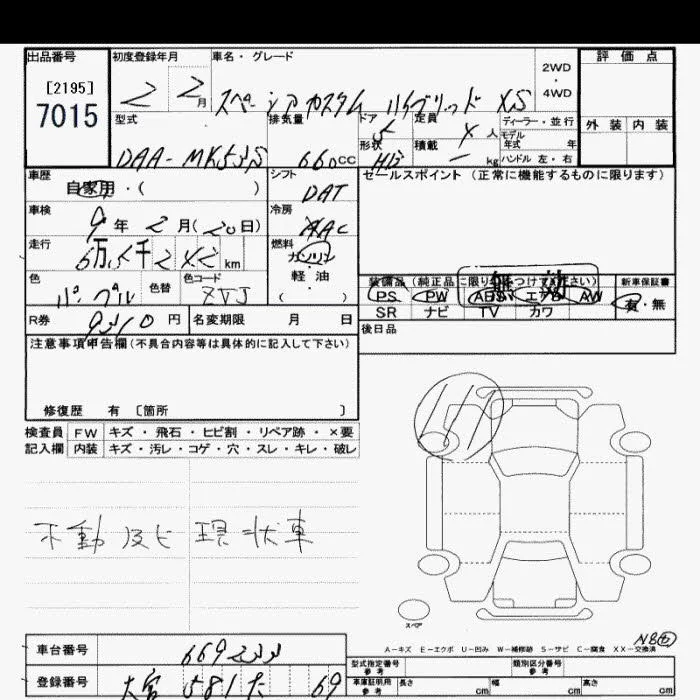 出品番号
[2195]
7015
初度登録年月
2 2 月
車名・グレード
スペーシア カスタム ハイブリッド XS
2WD
・
4WD
評価点
外装 内装
型式
DAA-MK53S
排気量
660 CC
ドア 5
形状 HB
定員 4 人
積載 - kg
ディーラー・並行
モデル
年式 年
ハンドル 左・右
車歴
自家用・( )
シフト
DAT
セールスポイント (正常に機能するものに限ります)
車検
9 年 2 月( 20 日)
冷房
AAC
走行
6万5千2 km
燃料
ガソリン
・
軽油
( )
色
パープル
色替
色コード
ZVJ
装備品 (純正品に限り つけて さい)
無効
PS PW ABS エアB AW
SR ナビ TV カワ
新車保証書
有・無
R券
円
名変期限 月 日
後日品
注意事項申告欄(不具合内容等は具体的に記入して下さい)
修復歴 有 〔箇所 〕
検査員 FW キズ・飛石・ヒビ割・リペア跡・×要
記入欄 内装 キズ・汚レ・コゲ・穴・スレ・キレ・破レ
不動及ビ現状車
スペア
A-キズ E-エクボ U-凹み W-補修跡 S-サビ C-腐食 XX-交換済
車台番号
登録番号
大宮 581 69
型式指定番号
参考
類別区分番号
参考
車庫証明用
参考
長さ cm 幅 cm 高さ cm